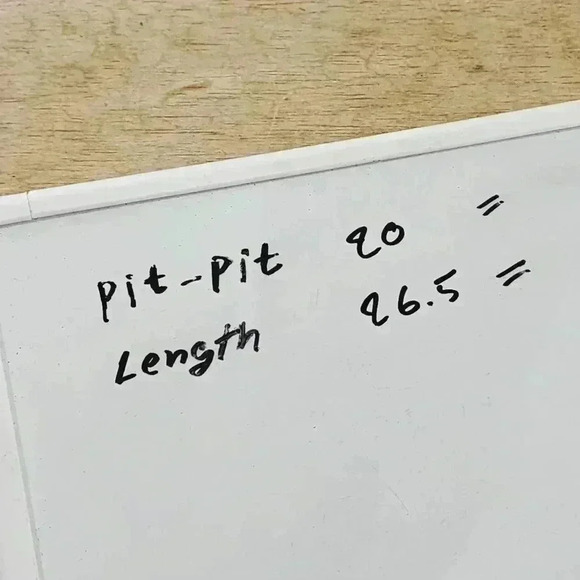 pit-pit 20 "
Length 26.5 "